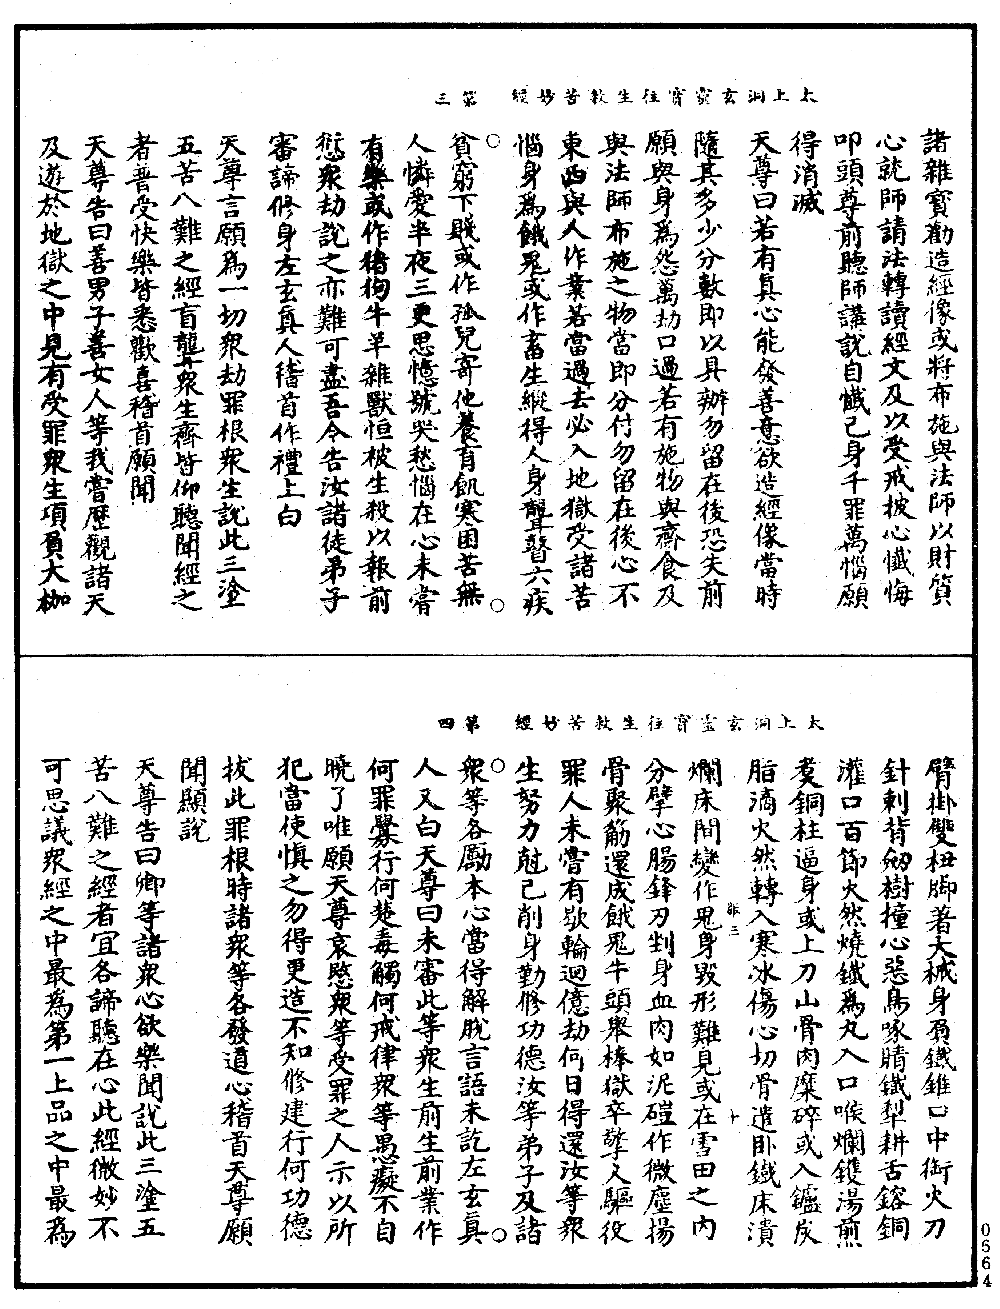 太上洞玄靈寶往生救苦妙經 第三
諸雜寳勸造經像或將布施與法師以財質
心就師請法轉讀經文及以受戒披心懺悔
叩頭尊前聽師講説自懺己身千罪萬惱願
得消滅
天尊曰若有真心能發善意欲造經像當時
隨其多少分數即以具辦勿留在後恐失前
願與身爲怨萬劫口過若有施物與齋食及
與法師布施之物當即分付勿留在後心不
東西與人作業若當過去必入地獄受諸苦
惱身爲餓鬼或作畜生縱得人身聾瞽六疾
貧窮下賤或作孤兒寄他養育飢寒困苦無
人憐愛半夜三更思憶號哭愁惱在心未嘗
有樂或作猪狗牛羊雜獸恒被生殺以報前
愆衆劫説之亦難可盡吾今告汝諸徒弟子
審諦修身左玄真人稽首作禮上白
天尊言願爲一切衆劫罪根衆生説此三塗
五苦八難之經盲聾衆生齊皆仰聽聞經之
者普受快樂皆悉歡喜稽首願聞
天尊告曰善男子善女人等我嘗歷觀諸天
及遊於地獄之中見有受罪衆生項負大枷
太上洞玄靈寶往生救苦妙經 第四
臂掛雙杻脚著大械身負鐵錐口中銜火刀
針刺背劒樹撞心惡鳥啄睛鐵犁耕舌鎔銅
灌口百節火然燒鐵爲丸入口喉爛鑊湯煎
煑銅柱逼身或上刀山骨肉糜碎或入鑪炭
脂滴火然轉入寒冰傷心切骨遣卧鐵床潰
爛床間變作鬼身毀形難見或在雪田之内
分擘心腸鋒刃剉身血肉如泥磑作微塵揚
骨聚筋還成餓鬼牛頭舉棒獄卒擎叉驅役
罪人未嘗有歇輪迴億劫何日得還汝等衆
生努力尅己削身勤修功德汝等弟子及諸
衆等各勵本心當得解脱言語未訖左玄真
人又白天尊曰未審此等衆生前生前業作
何罪釁行何楚毒觸何戒律衆等愚癡不自
曉了唯願天尊哀愍衆等受罪之人示以所
犯當使慎之勿得更造不知修建行何功德
拔此罪根時諸衆等各發道心稽首天尊願
聞顯説
天尊告曰卿等諸衆心欲樂聞説此三塗五
苦八難之經者宜各諦聽在心此經微妙不
可思議衆經之中最爲第一上品之中最爲
0564